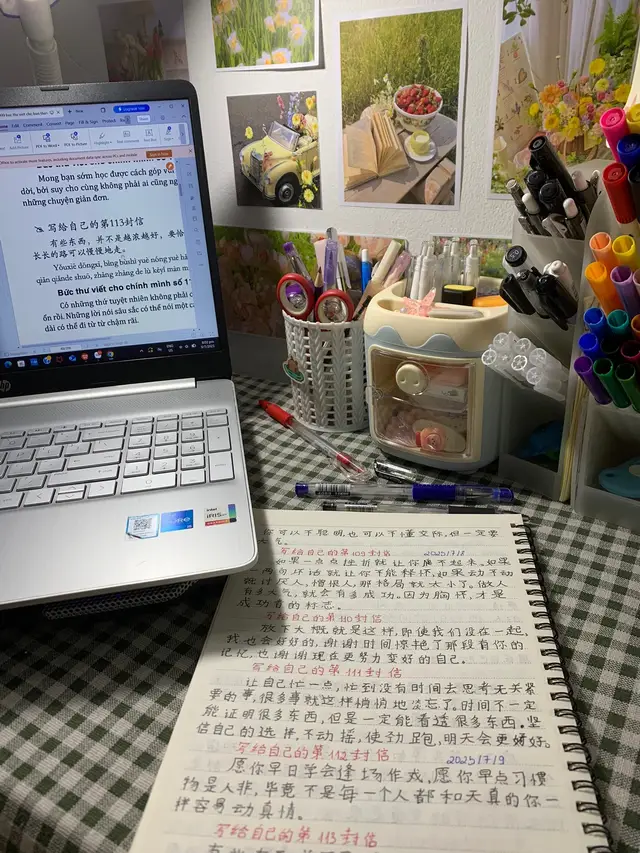 Mong bạn sớm học được cách góp
dời, bởi suy cho cùng không phải ai cũng
những chuyện giản đơn.
写给自己的第113封信
有些东西，并不是越浓越好，要恰
长长的路可以慢慢地走。
Yǒuxiē dōngxi, bìng bùshì yuè nóng yuè
qiān qiānde shuō, zhǎng zhǎng de lù kěyǐ màn
Bức thư viết cho chính mình số
Có những thứ tuyệt nhiên không phải
ổn rồi. Những lời nói sâu sắc có thể nói một
dài có thể đi từ từ chậm rãi.
hp
intel
iRIS
你可以不聪明,也可以不懂交际,但一定要
大气。
写给自己的第109封信
2025/7/18
如果一点点挫折就让你爬不起来,如果
一两句坏话就让你不能释怀,如果动不动
就讨厌人,憎恨人,那格局就太小了。做人
有多大气,就会有多成功。因为胸怀,才是
成功者的标志。
写给自己的第110封信
放下大概就是这样,即使我们没在一起,
我也会好好的,谢谢时间擦艳了那段有你的
记忆,也谢谢现在更努力变好的自己。
写给自己的第111封信
让自己忙一点,忙到没有时间去思考无关紧
要的事,很多事就这样悄悄地淡忘了。时间不一定
能证明很多东西,但是一定能看透很多东西。坚
信自己的选择,不动摇,使劲跑,明天会更好。
写给自己的第112封信
2025/7/19
愿你早日学会逢场作戏,愿你早点习惯
物是人非,毕竟不是每一个人都和天真的你一
样容易动真情。
写给自己的第113封信